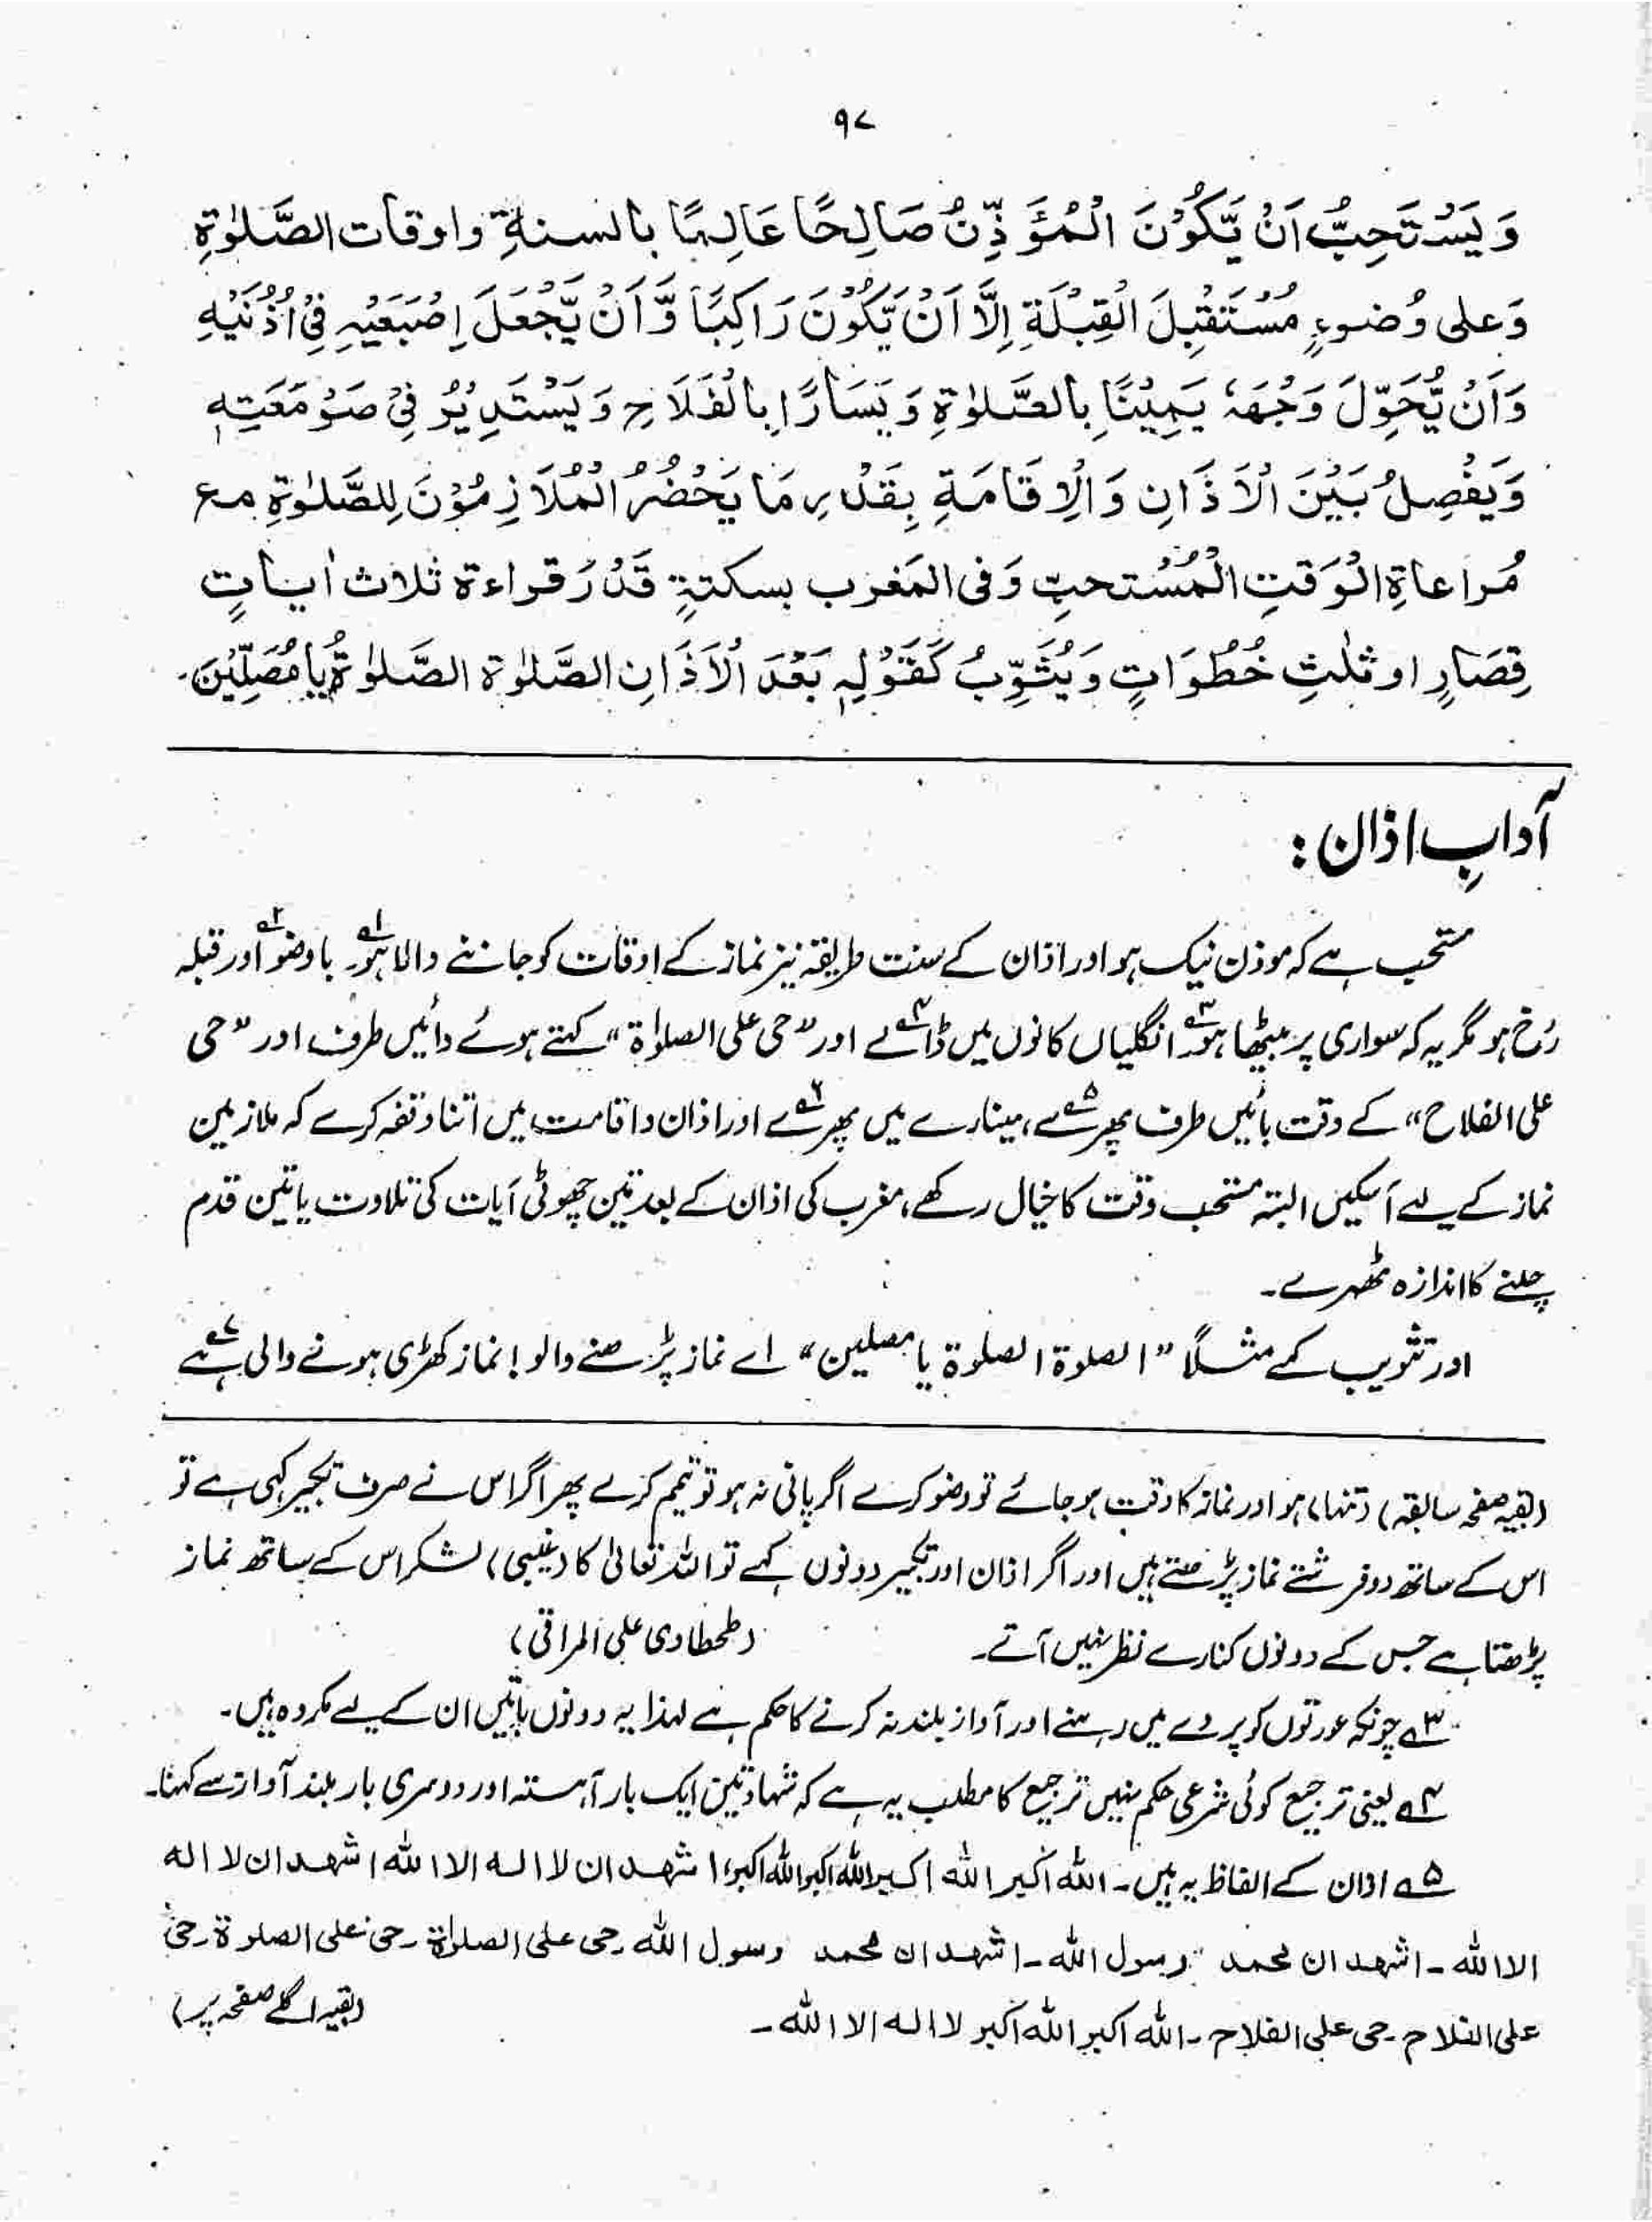 ۹۷
وَيَسْتَحِبُّ اَنْ يَّكُوْنَ الْمُؤَذِّنُ صَالِحًا عَالِمًا بالسنةِ واوقات الصَّلوٰةِ
وَعلى وُضوءٍ مُسْتَقْبِلَ الْقِبْلَةِ اِلَّا اَنْ يَّكُوْنَ رَاكِبًا وَّاَنْ يَّجْعَلَ اِصْبَعَيْهِ فِيْ اُذُنَيْهِ
وَاَنْ يُّحَوِّلَ وَجْهَهٗ يَمِيْنًا بِالصَّلوٰةِ وَيَسَارًا بِالْفَلَاحِ وَيَسْتَدِيْرُ فِيْ صَوْمَعَتِهٖ
وَيَفْصِلُ بَيْنَ الْاَذَانِ وَالْاِقَامَةِ بِقَدْرِ مَا يَحْضُرُ الْمُلَازِمُوْنَ لِلصَّلوٰةِ مع
مُراعاةِ الْوَقتِ الْمُسْتحبِّ وَفى المَغرب بسكتةٍ قَدْرَ قراءة ثلاث اٰياتٍ
قِصَارٍ او ثلٰثِ خُطُوَاتٍ وَيُثَوِّبُ كَقَوْلِهٖ بَعْدَ الْاَذَانِ الصَّلوٰة الصَّلوٰةُ يَا مُصَلِّيْنَ۔
آدابِ اذان :
مستحب ہے کہ موذن نیک ہو اور اذان کے سنت طریقہ نیز نماز کے اوقات کو جاننے والا ہو۱؎۔ باوضو۲؎ اور قبلہ
رُخ ہو مگر یہ کہ سواری پر بیٹھا ہو۳؎۔ انگلیاں کانوں میں ڈالے۴؎ اور "حی علی الصلوٰۃ" کہتے ہوئے دائیں طرف اور "حی
علی الفلاح" کے وقت بائیں طرف پھرے۵؎، مینارے میں پھرے۶؎ اور اذان واقامت میں اتنا وقفہ کرے کہ ملازمین
نماز کے لیے آسکیں البتہ مستحب وقت کا خیال رکھے، مغرب کی اذان کے بعد تین چھوٹی آیات کی تلاوت یا تین قدم
چلنے کا اندازہ ٹھہرے۔
اور تثویب کہے مثلاً "الصلوة الصلوة یا مصلین" اے نماز پڑھنے والو! نماز کھڑی ہونے والی ہے۷؎
(بقیہ صفحہ سابقہ) (تنہا) ہو اور نماز کا وقت ہو جائے تو وضو کرے اگر پانی نہ ہو تو تیمم کرے پھر اگر اس نے صرف تکبیر کہی ہے تو
اس کے ساتھ دو فرشتے نماز پڑھتے ہیں اور اگر اذان اور تکبیر دونوں کہے تو اللہ تعالیٰ کا (غیبی) لشکر اس کے ساتھ نماز
پڑھتا ہے جس کے دونوں کنارے نظر نہیں آتے۔ (طحطاوی علی المراقی)
۳؎ چونکہ عورتوں کو پردے میں رہنے اور آواز بلند نہ کرنے کا حکم ہے لہذا یہ دونوں باتیں ان کے لیے مکروہ ہیں۔
۴؎ یعنی ترجیع کوئی شرعی حکم نہیں ترجیع کا مطلب یہ ہے کہ شہادتین ایک بار آہستہ اور دوسری بار بلند آواز سے کہنا۔
۵؎ اذان کے الفاظ یہ ہیں۔ الله اکبر الله اکبر الله اکبر الله اکبر، اشهد ان لا اله الا الله اشهد ان لا اله
الا الله۔ اشهد ان محمد رسول الله۔ اشهد ان محمد رسول الله۔ حی علی الصلوٰة۔ حی علی الصلوة۔ حی
علی الفلاح۔ حی علی الفلاح۔ الله اکبر الله اکبر لا اله الا الله۔ (بقیہ اگلے صفحہ پر)